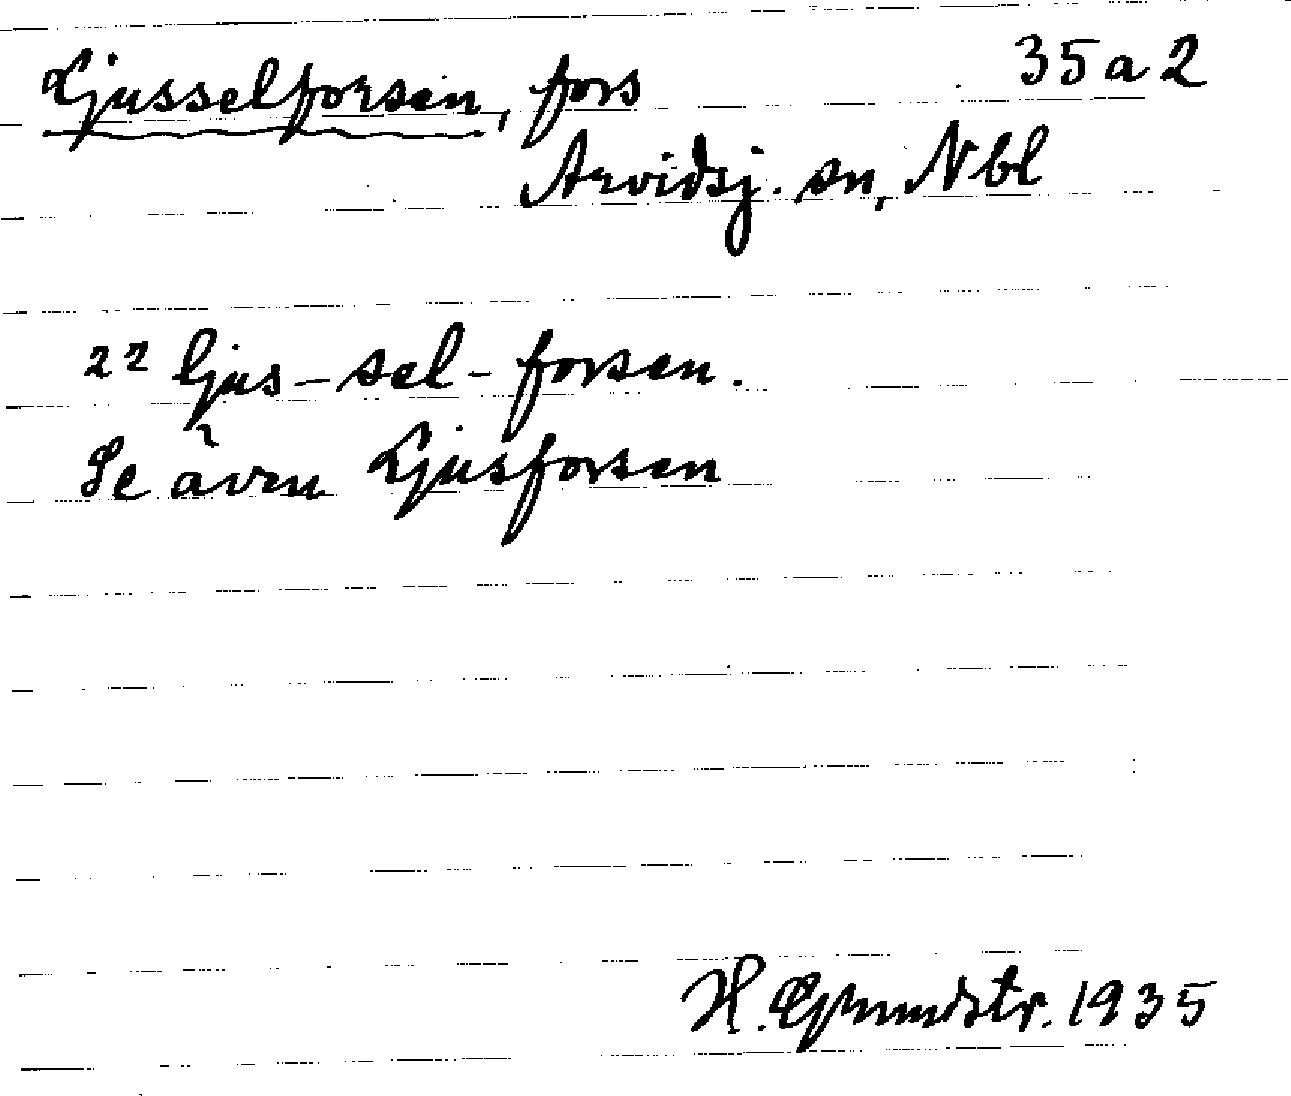 Ljusselforsen, fors 35 a 2
Arvidsj. sn, Nbl
22 ljus-sel-forsen.
Se även Ljusforsen
H. Grundstr. 1935